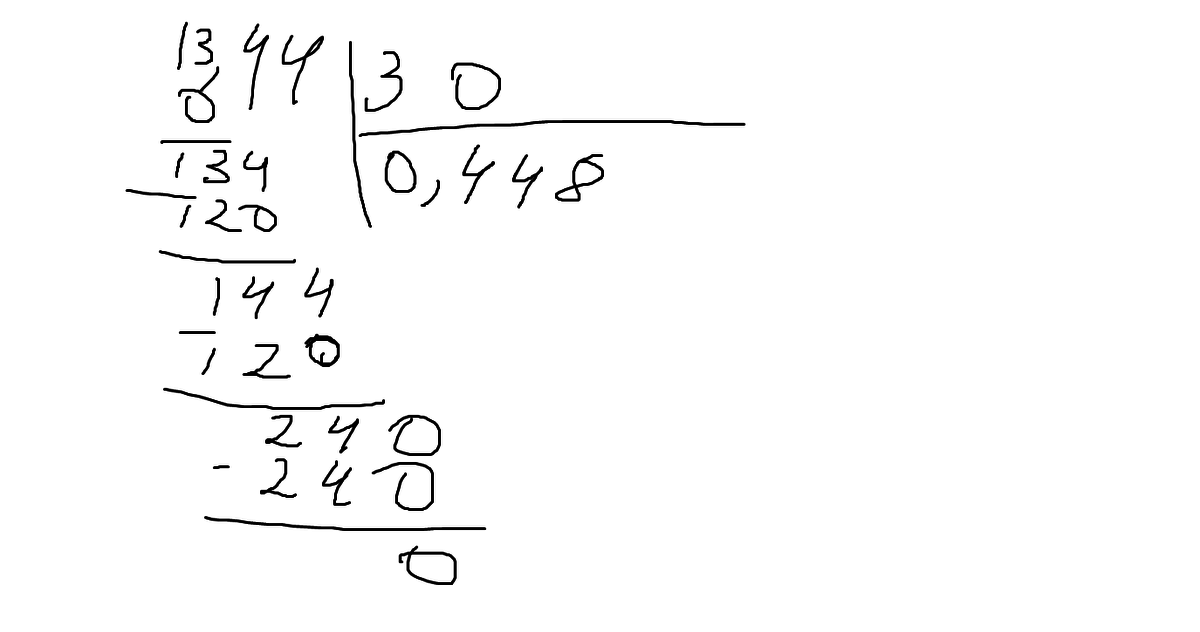 13,44 30
0
134 0,448
- 120
144
- 120
240
- 240
0